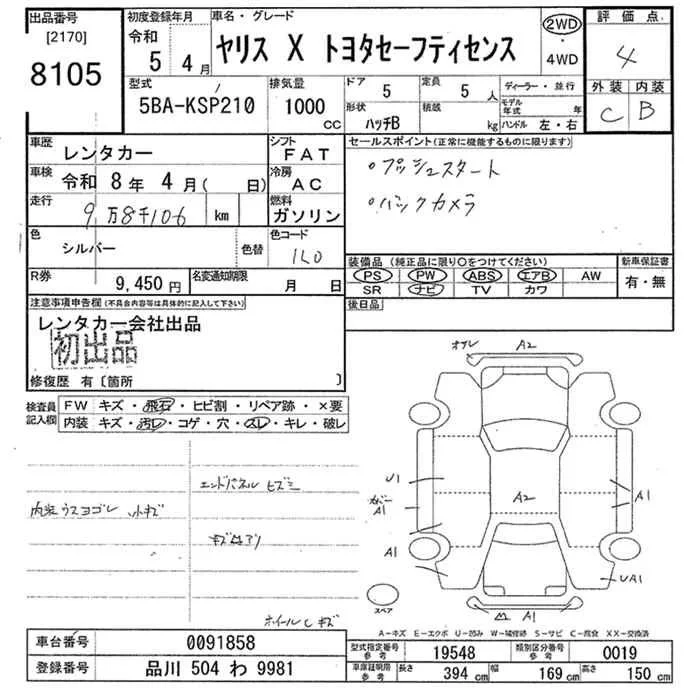 出品番号 初度登録年月 車名・グレード 2WD 評価点
[2170] 令和 ヤリス X トヨタセーフティセンス
8105 5 4月 4WD 4
型式 排気量 ドア 5 定員 5 人 ディーラー・並行 外装 内装
5BA-KSP210 1000 cc 形状 ハッチB 積載 kg モデル年式 年 C B
ハンドル 左・右
車歴 レンタカー シフト FAT セールスポイント(正常に機能するものに限ります)
車検 令和 8年 4月( 日) 冷房 AC ・プッシュスタート
走行 9万8千106 km 燃料 ガソリン ・バックカメラ
色 シルバー 色替 色コード 1L0
装備品(純正品に限り〇をつけてください) 新車保証書
PS PW ABS エアB AW 有・無
SR ナビ TV カワ
R券 9,450円 名変通知期限 月 日 後日品
注意事項申告欄(不具合内容等は具体的に記入して下さい)
レンタカー会社出品
初出品
修復歴 有〔箇所 〕
検査員記入欄 FW キズ・飛石・ヒビ割・リペア跡・×要
内装 キズ・汚レ・コゲ・穴・スレ・キレ・破レ
A2
エンドパネル ヒズミ
内装ウスヨゴレ 小キズ
キズ凹アリ
ホイールCキズ
U1 A1
A2
A1 A1
UA1
スペア
凹 A1
A-キズ E-エクボ U-凹み W-補修跡 S-サビ C-腐食 XX-交換済
車台番号 0091858 型式指定番号 参考 19548 類別区分番号 参考 0019
登録番号 品川 504 わ 9981 車庫証明用 参考 長さ 394 cm 幅 169 cm 高さ 150 cm